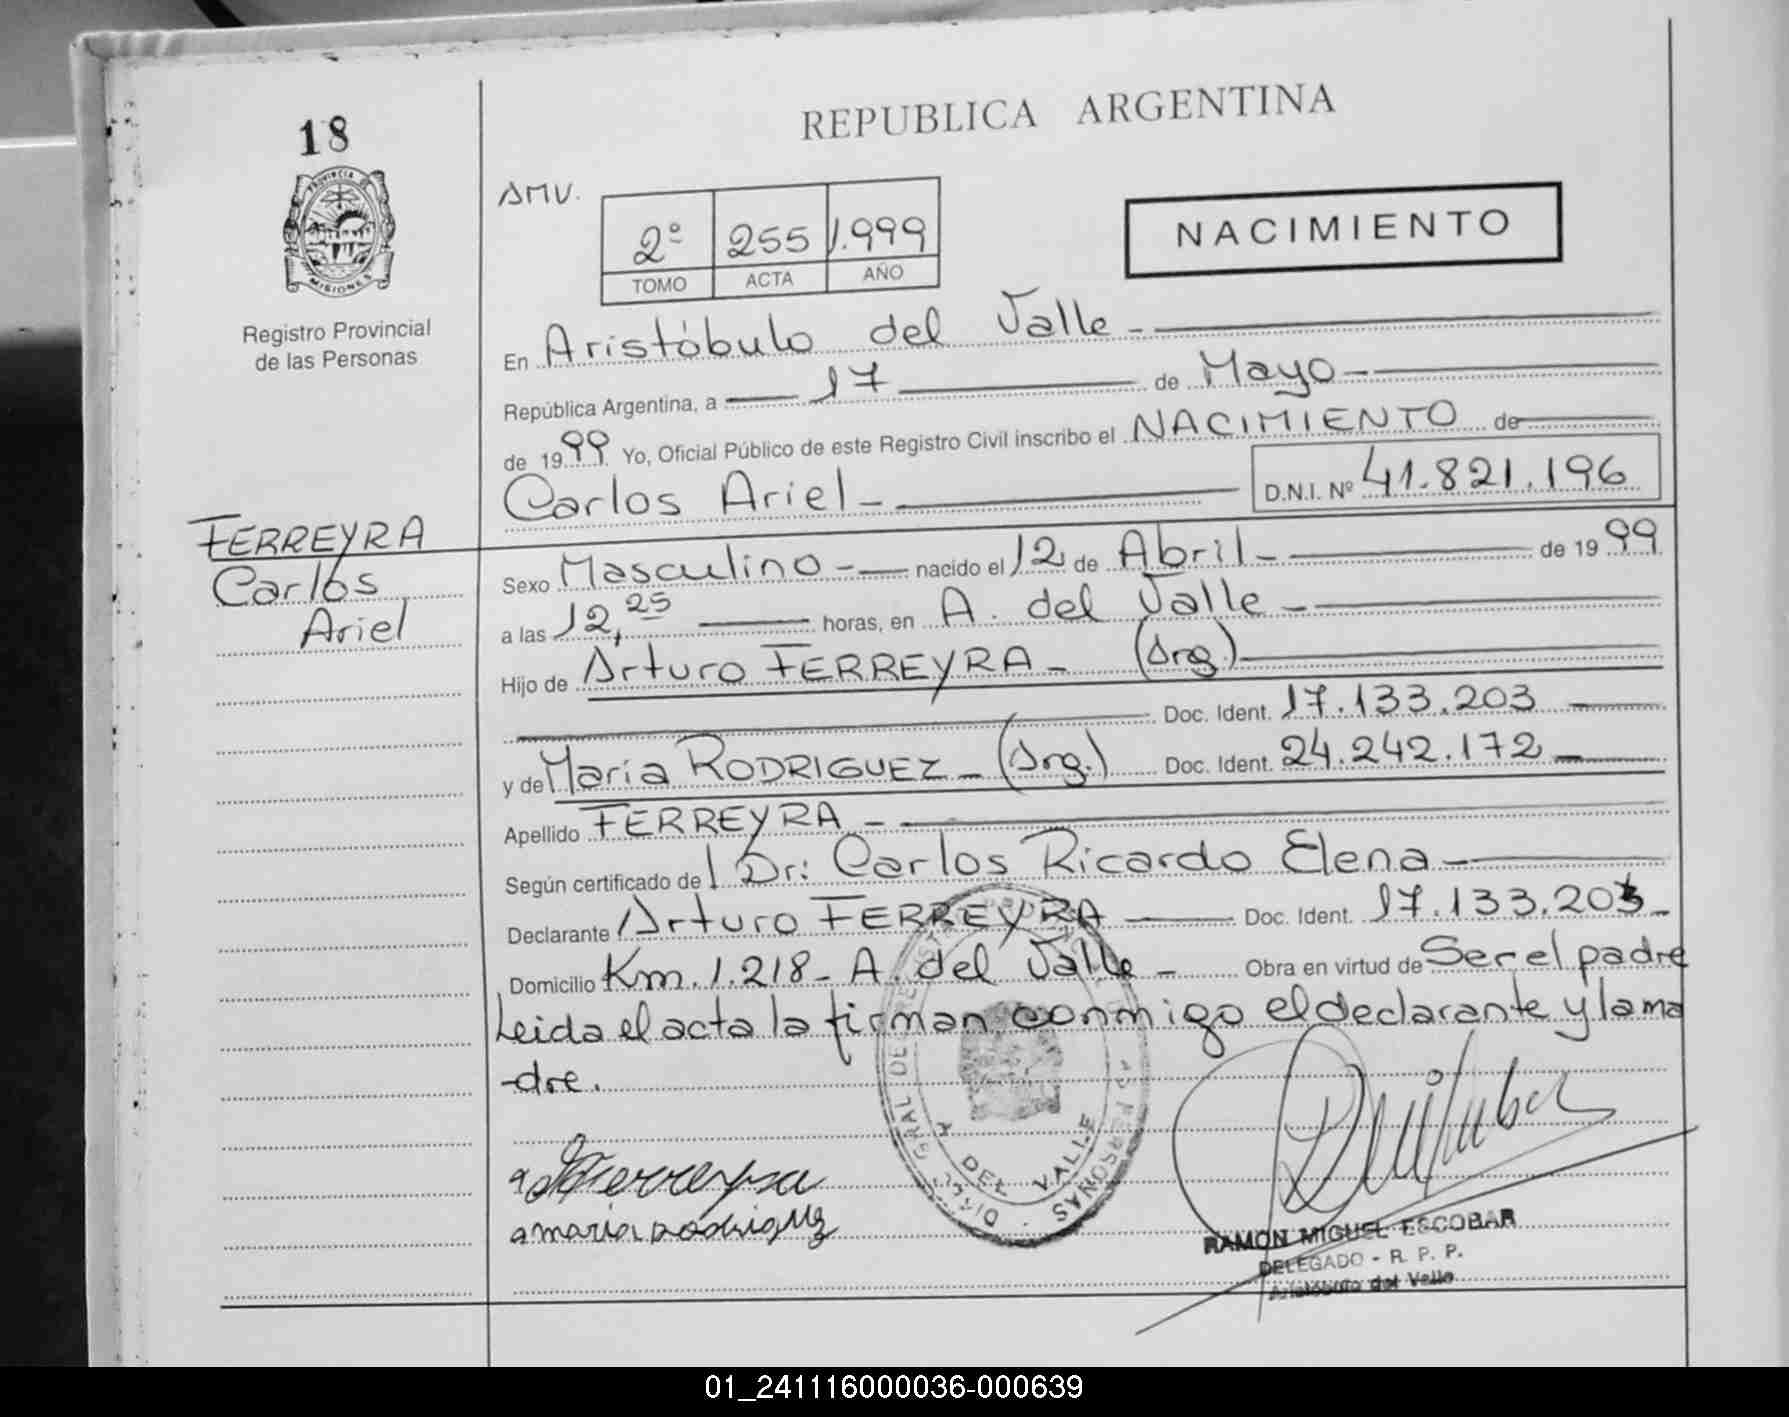 18
PROVINCIA DE
MISIONES
Registro Provincial
de las Personas
FERREYRA
Carlos
Ariel
REPUBLICA ARGENTINA
AMV.
2º 255 1.999
TOMO ACTA AÑO
NACIMIENTO
En Aristóbulo del Valle -
República Argentina, a 17 de Mayo -
de 1999 Yo, Oficial Público de este Registro Civil inscribo el NACIMIENTO de
Carlos Ariel - D.N.I. Nº 41.821.196
Sexo Masculino - nacido el 12 de Abril - de 1999
a las 12,25 horas, en A. del Valle -
Hijo de Arturo FERREYRA - (Arg.)
Doc. Ident. 17.133.203
y de María RODRIGUEZ - (Arg.) Doc. Ident. 24.242.172 -
Apellido FERREYRA -
Según certificado del Dr: Carlos Ricardo Elena -
Declarante Arturo FERREYRA Doc. Ident. 17.133.203 -
Domicilio Km. 1.218 - A. del Valle - Obra en virtud de Ser el padre
Leida el acta la firman conmigo el declarante y la ma
-dre.
A. DEL VALLE
Ferreyra
maria rodriguez
RAMON MIGUEL ESCOBAR
DELEGADO - R. P. P.
Aristóbulo del Valle
01_241116000036-000639